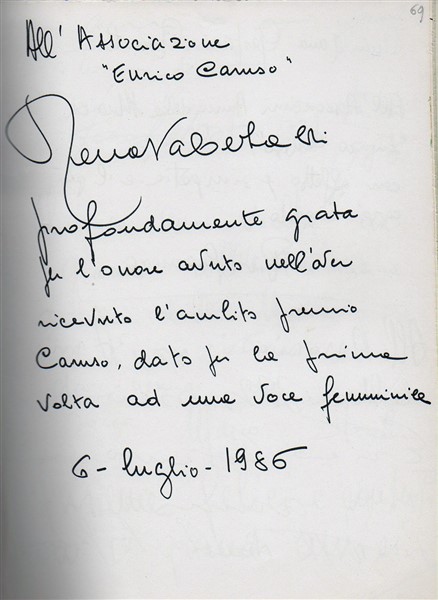 69
All' Associazione
"Enrico Caruso"
Renata Tebaldi
profondamente grata
per l'onore avuto nell'aver
ricevuto l'ambito premio
Caruso, dato per la prima
volta ad una voce femminile
6 - luglio - 1986